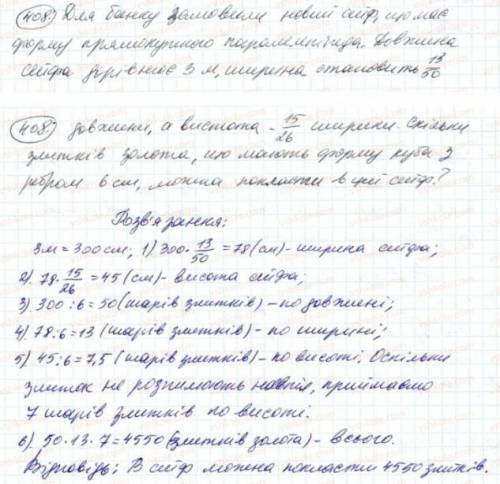 408. Для банку замовили новий сейф, що має
форму прямокутного паралелепіпеда. Довжина
сейфа дорівнює 3 м, ширина становить 13/50
408. довжини, а висота - 15/26 ширини. Скільки
злитків золота, що мають форму куба з
ребром 6 см, можна покласти в цей сейф?
Розв'язання:
3м = 300см; 1) 300 · 13/50 = 78 (см) - ширина сейфа;
2) 78 · 15/26 = 45 (см) - висота сейфа;
3) 300 : 6 = 50 (шарів злитків) - по довжині;
4) 78 : 6 = 13 (шарів злитків) - по ширині;
5) 45 : 6 = 7,5 (шарів злитків) - по висоті. Оскільки
злиток не розпилюють навпіл, приймаємо
7 шарів злитків по висоті.
6) 50 · 13 · 7 = 4550 (злитків золота) - всього.
Відповідь: В сейф можна покласти 4550 злитків.